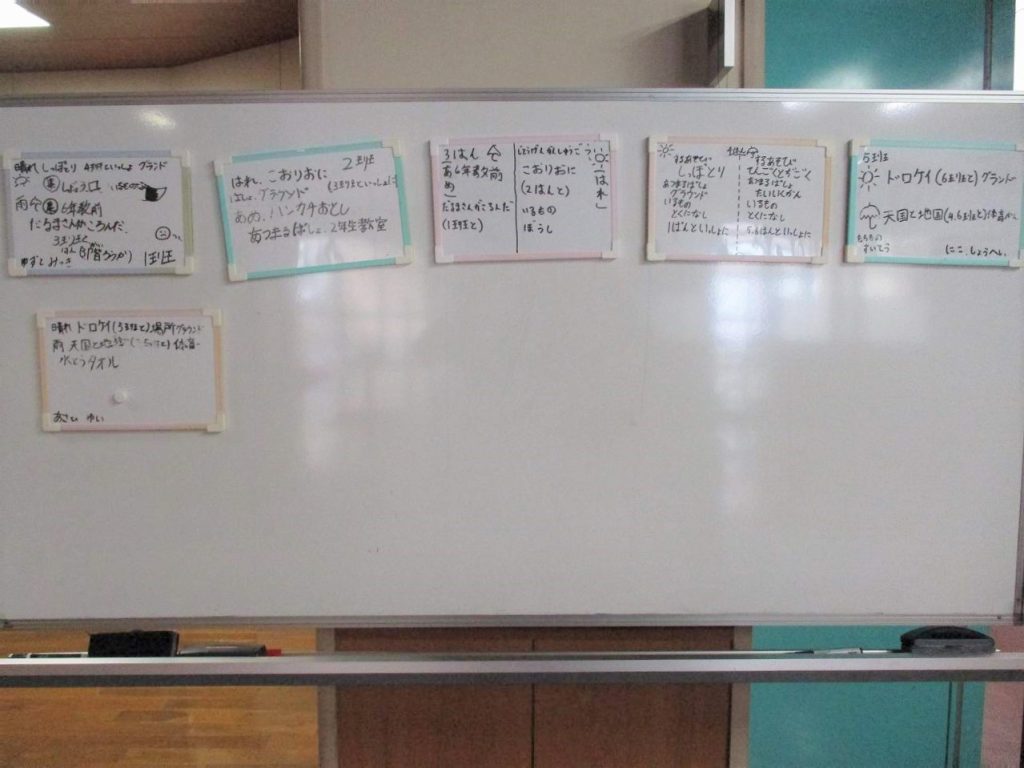 晴れ しっぽとり 4班といっしょ グランド
雨 6年教前
だるまさんがころんだ
3班と
1班
2班
はれ、こおりおに
ばしょ、グラウンド (3班といっしょに)
あめ、ハンカチおとし
あつまるばしょ、2年生教室
3はん
あ 6年教前
め
だるまさんがころんだ
(1班と)
「はれ」
こおりおに
(2はんと)
いるもの
ぼうし
するあそび
しっぽとり
あつまるばしょ
グラウンド
いるもの
とくになし
1ぱんといっしょに
するあそび
てんごくとじごく
あつまるばしょ
たいいくかん
いるもの
とくになし
5.6はんといっしょに
5班
ドロケイ (6班と) グランド
天国と地国 (4.6班と)
もちもの
すいとう
にこ、しょうへい
晴れ ドロケイ (5班と) 場所グラウンド
雨 天国と
水とうタオル
あさひ ゆい